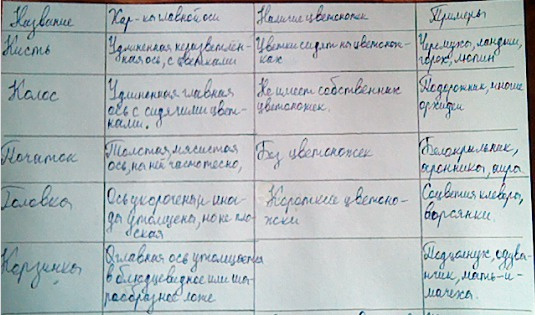 Название
Хар-ки главной оси
Наличие цветоножек
Примеры
Кисть
Удлиненная неразветвлён-
ная ось, с цветками
Цветки сидят на цветонож-
ках
Черемуха, ландыш,
горох, люпин
Колос
Удлиненная главная
ось с сидячими цвет-
ками.
Не имеет собственных
цветоножек.
Подорожник, многие
орхидеи
Початок
Толстая, мясистая
ось, на ней часто тесно,
Без цветоножек
Белокрыльник,
аронника, аира
Головка
Ось укорочена, и ино-
гда утолщена, но не пло-
ская
Короткие цветоно-
жки
Соцветия клевера,
ворсянки.
Корзинка
Главная ось утолщается
в блюдцевидное или ша-
рообразное ложе
Подсолнух, одува-
нчик, мать-и-
мачеха.